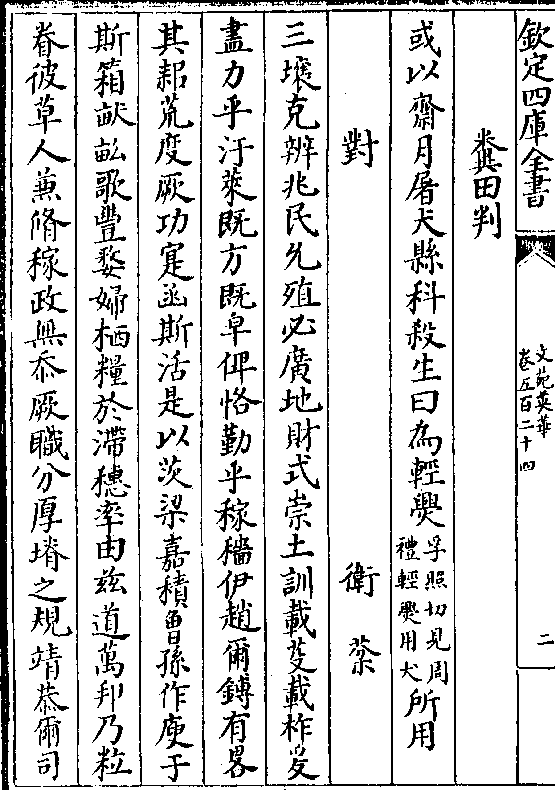 欽定四庫全書
文苑英華
卷五百二十四
二
糞田判
或以齋月屠犬縣科殺生曰為輕㸑孚照切見周禮輕㸑用犬所用
對 衛棻
三壤克辨兆民允殖必廣地財式崇土訓載芟載柞爰
盡力乎汙萊既方既皁俾恪勤乎稼穡伊趙爾鎛有畧
其耜荒度厥功寔函斯活是以茨梁嘉積曽孫作庾于
斯箱畎畝歌豐婺婦栖糧於滯穗率由兹道萬邦乃粒
眷彼草人蕪脩稼政無忝厥職分厚堉之規靖恭爾司